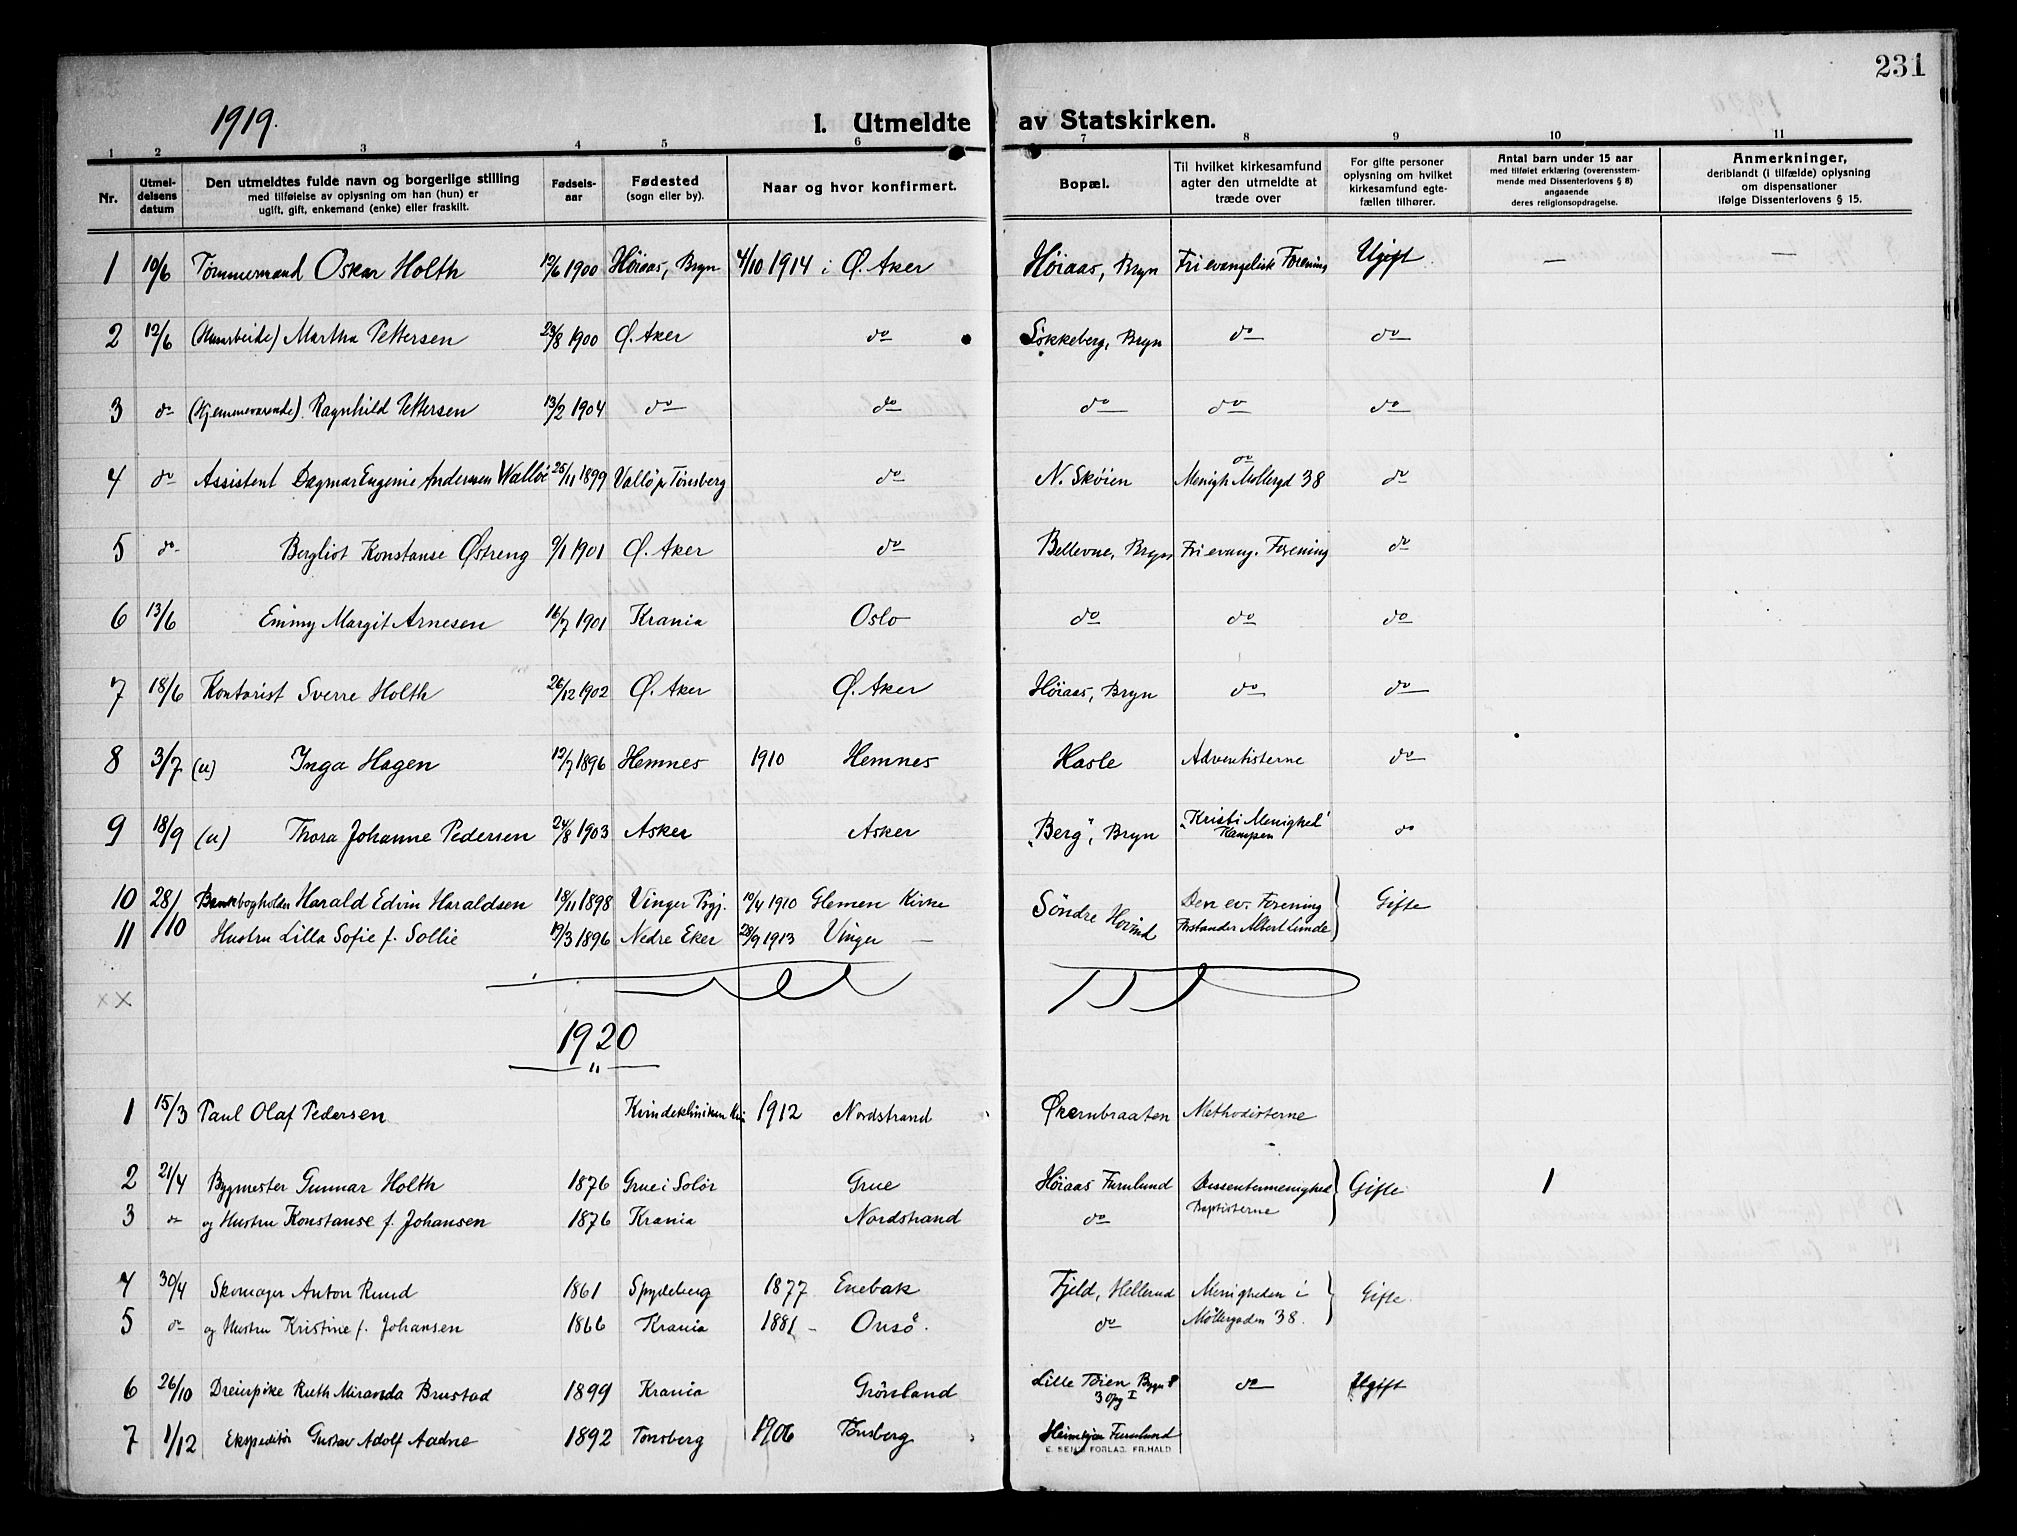 231
1919.
I. Utmeldte av Statskirken.
1 2 3 4 5 6 7 8 9 10 11
Nr.
Utmeldelsens datum
Den utmeldtes fulde navn og borgerlige stilling
med tilføielse av oplysning om han (hun) er
ugift, gift, enkemand (enke) eller fraskilt.
Fødselsaar
Fødested
(sogn eller by).
Naar og hvor konfirmert.
Bopæl.
Til hvilket kirkesamfund
agter den utmeldte at
træde over
For gifte personer
oplysning om hvilket
kirkesamfund egtefællen tilhører.
Antal barn under 15 aar
med tilføiet erklæring (overensstemmende med Dissenterlovens § 8)
angaaende
deres religionsopdragelse.
Anmerkninger,
deriblandt (i tilfælde) oplysning
om dispensationer
ifølge Dissenterlovens § 15.
1 10/6 Tømmermand Oskar Holth 12/6 1900 Høiaas, Bryn 4/10 1914 i Ø. Aker Høiaas, Bryn Fri evangelisk Forening Ugift. — —
2 12/6 (Husarbeide) Martha Pettersen 23/8 1900 Ø. Aker do Søkkeberg, Bryn do do
3 do (Hjemmeværende). Ragnhild Pettersen 13/2 1904 do do do do do
4 do Assistent Dagmar Eugenie Andersen Walløe 25/11 1899 Vallö p Tønsberg do N. Skøien do Menigh Møllergd 38 do
5 do Bergliot Konstanse Østreng 9/1 1901 Ø. Aker do Bellevue, Bryn Fri evang. Forening do
6 13/6 Emmy Margit Arnesen 16/7 1901 Krania Oslo do do do
7 18/6 Kontorist Sverre Holth 26/12 1902 Ø. Aker Ø. Aker Høiaas, Bryn do do
8 3/7 (u) Inga Hagen 12/7 1896 Hemnes 1910 Hemnes Hasle Adventisterne do
9 18/9 (u) Thora Johanne Pedersen 24/8 1903 Asker Asker „Berg", Bryn „Kristi Menighed" Kampen do
10 28/10 Bankbogholder Harald Edvin Haraldsen 18/11 1898 Vinger Prgj. 10/4 1910 Glemen Kirke Söndre Hovind Den ev. Forening Gifte
11 Hustru Lilla Sofie f. Sollie 19/3 1896 Nedre Eker 28/9 1913 Vinger — Forstander Albert Lunde
x x
1920
1 15/3 Paul Olaf Pedersen Kvindekliniken Kria 1912 Nordstrand Økernbraaten Methodisterne
2 21/4 Bygmester Gunnar Holth 1876 Grue i Solør Grue Høiaas Furulund Dissentermenighed Gifte 1
3 do og Hustru Konstanse f. Johansen 1876 Krania Nordstrand do Baptisterne
4 30/4 Skomager Anton Rund 1861 Spydeberg 1877 Enebak Fjeld, Hellerud Menigheden i Gifte.
5 do og Hustru Kristine f. Johansen 1866 Krania 1881 - Onsö. do Möllergaden 38.
6 26/10 Dreierpike Ruth Miranda Brustad 1899 Krania Grönland Lille Tøien Bygn 8 3 opg I do Ugift
7 1/12 Ekspeditør Gustav Adolf Aadne 1892 Tønsberg 1906 Tönsberg Furulund
E. SEM'S FORLAG. FR.HALD